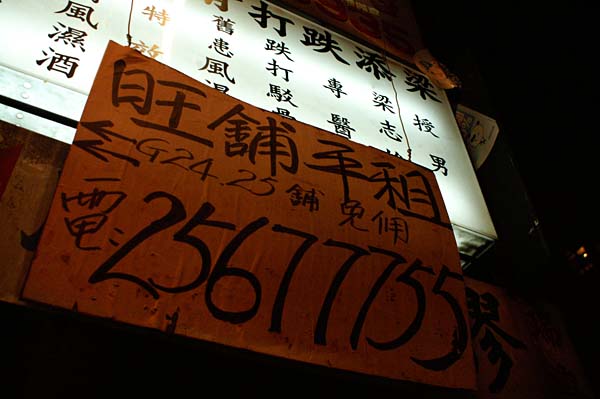 梁添跌打
授男
梁志
專醫
跌打駁
舊患風濕
特效
風濕酒
旺舖平租
G24.25舖免佣
電:25677755
琴